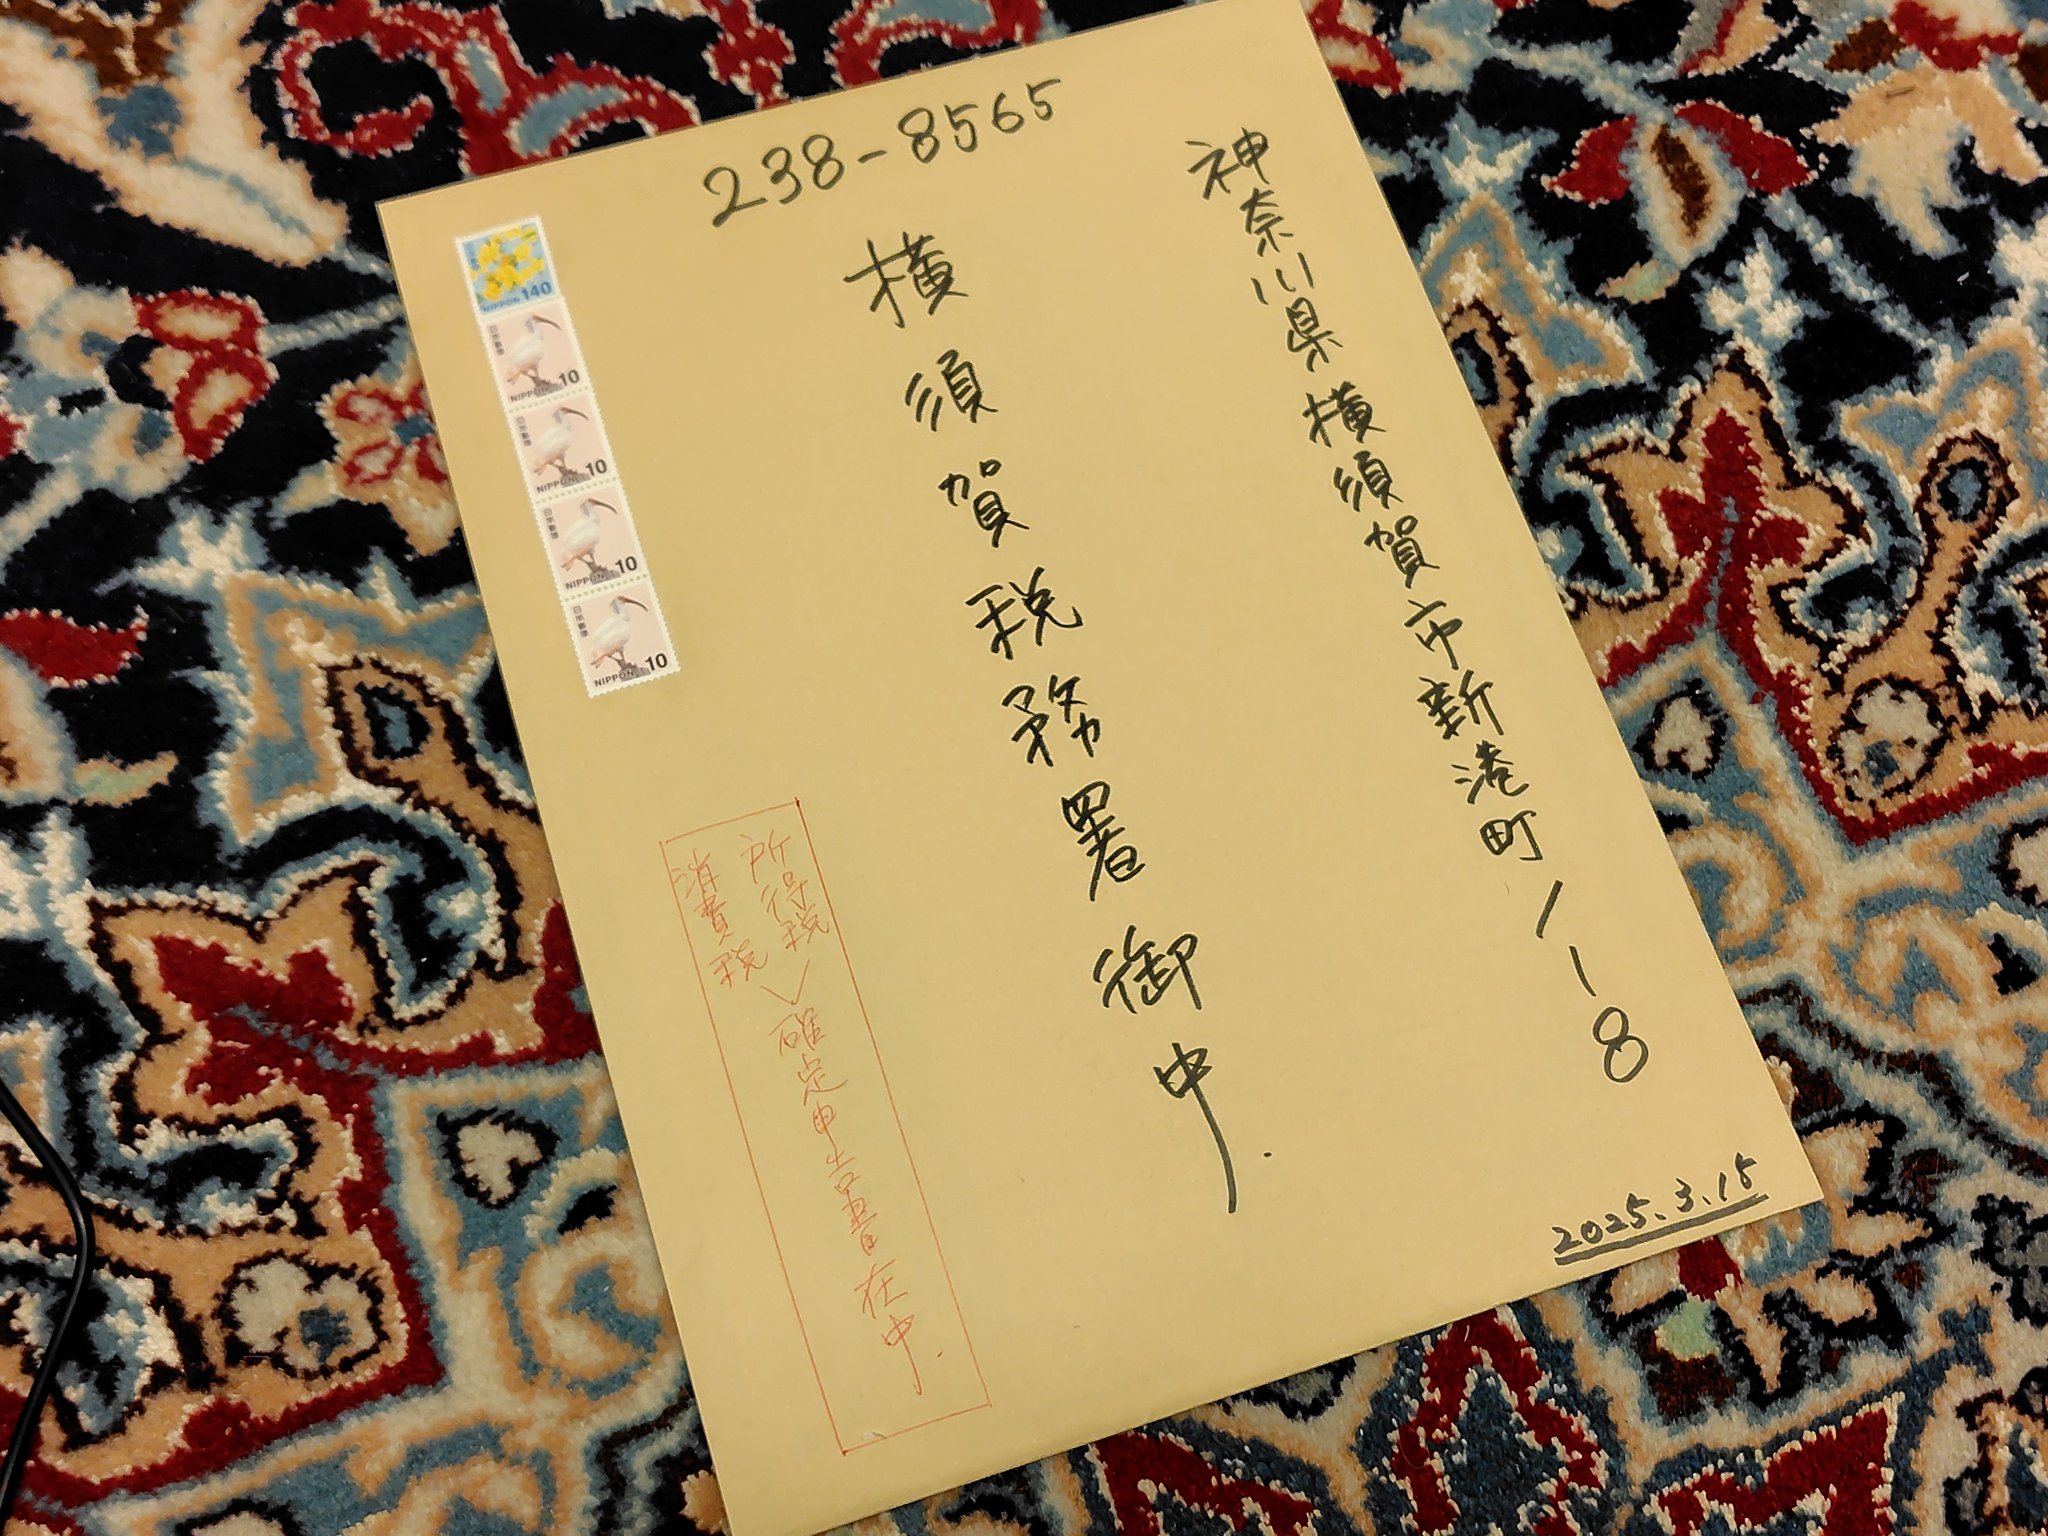 238-8565
神奈川県横須賀市新港町1-8
横須賀税務署御中.
2025.3.15
所得税
消費税
＞確定申告書在中.
NIPPON 140
日本郵便
NIPPON 10
日本郵便
NIPPON 10
日本郵便
NIPPON 10
日本郵便
NIPPON 10